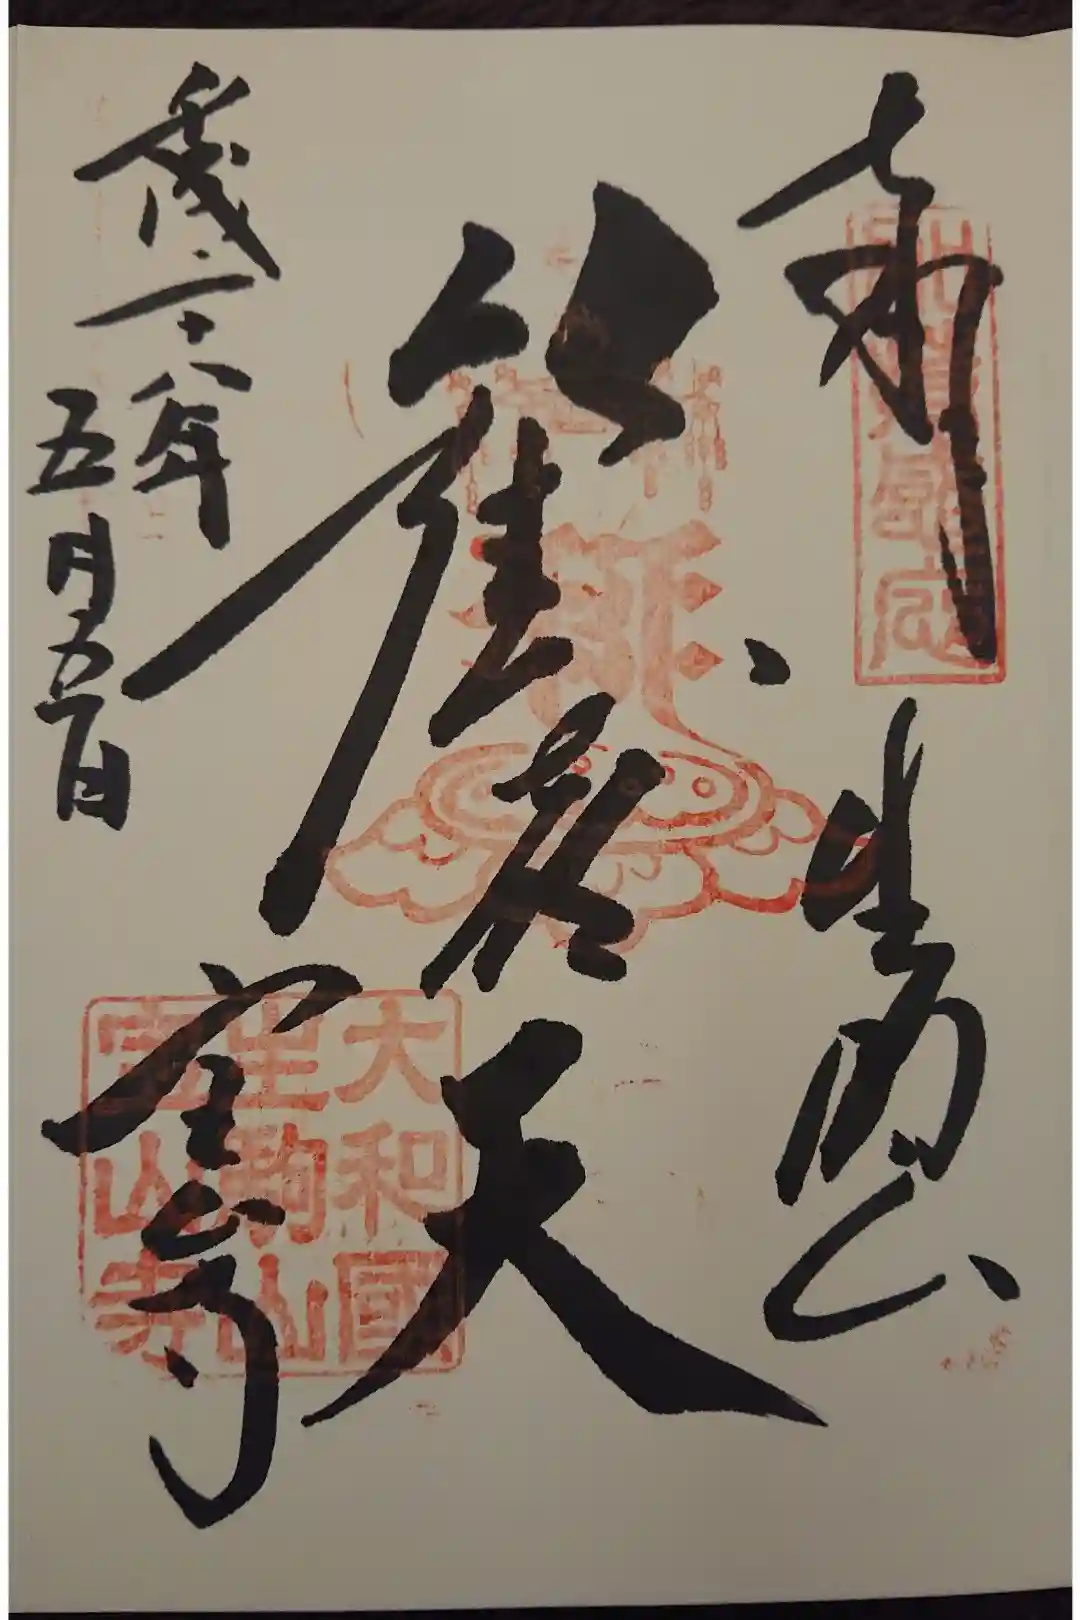 奉拝
生駒山
歓喜天
寶山寺
平成二十八年
五月五日
大和國
生駒山
寶山寺